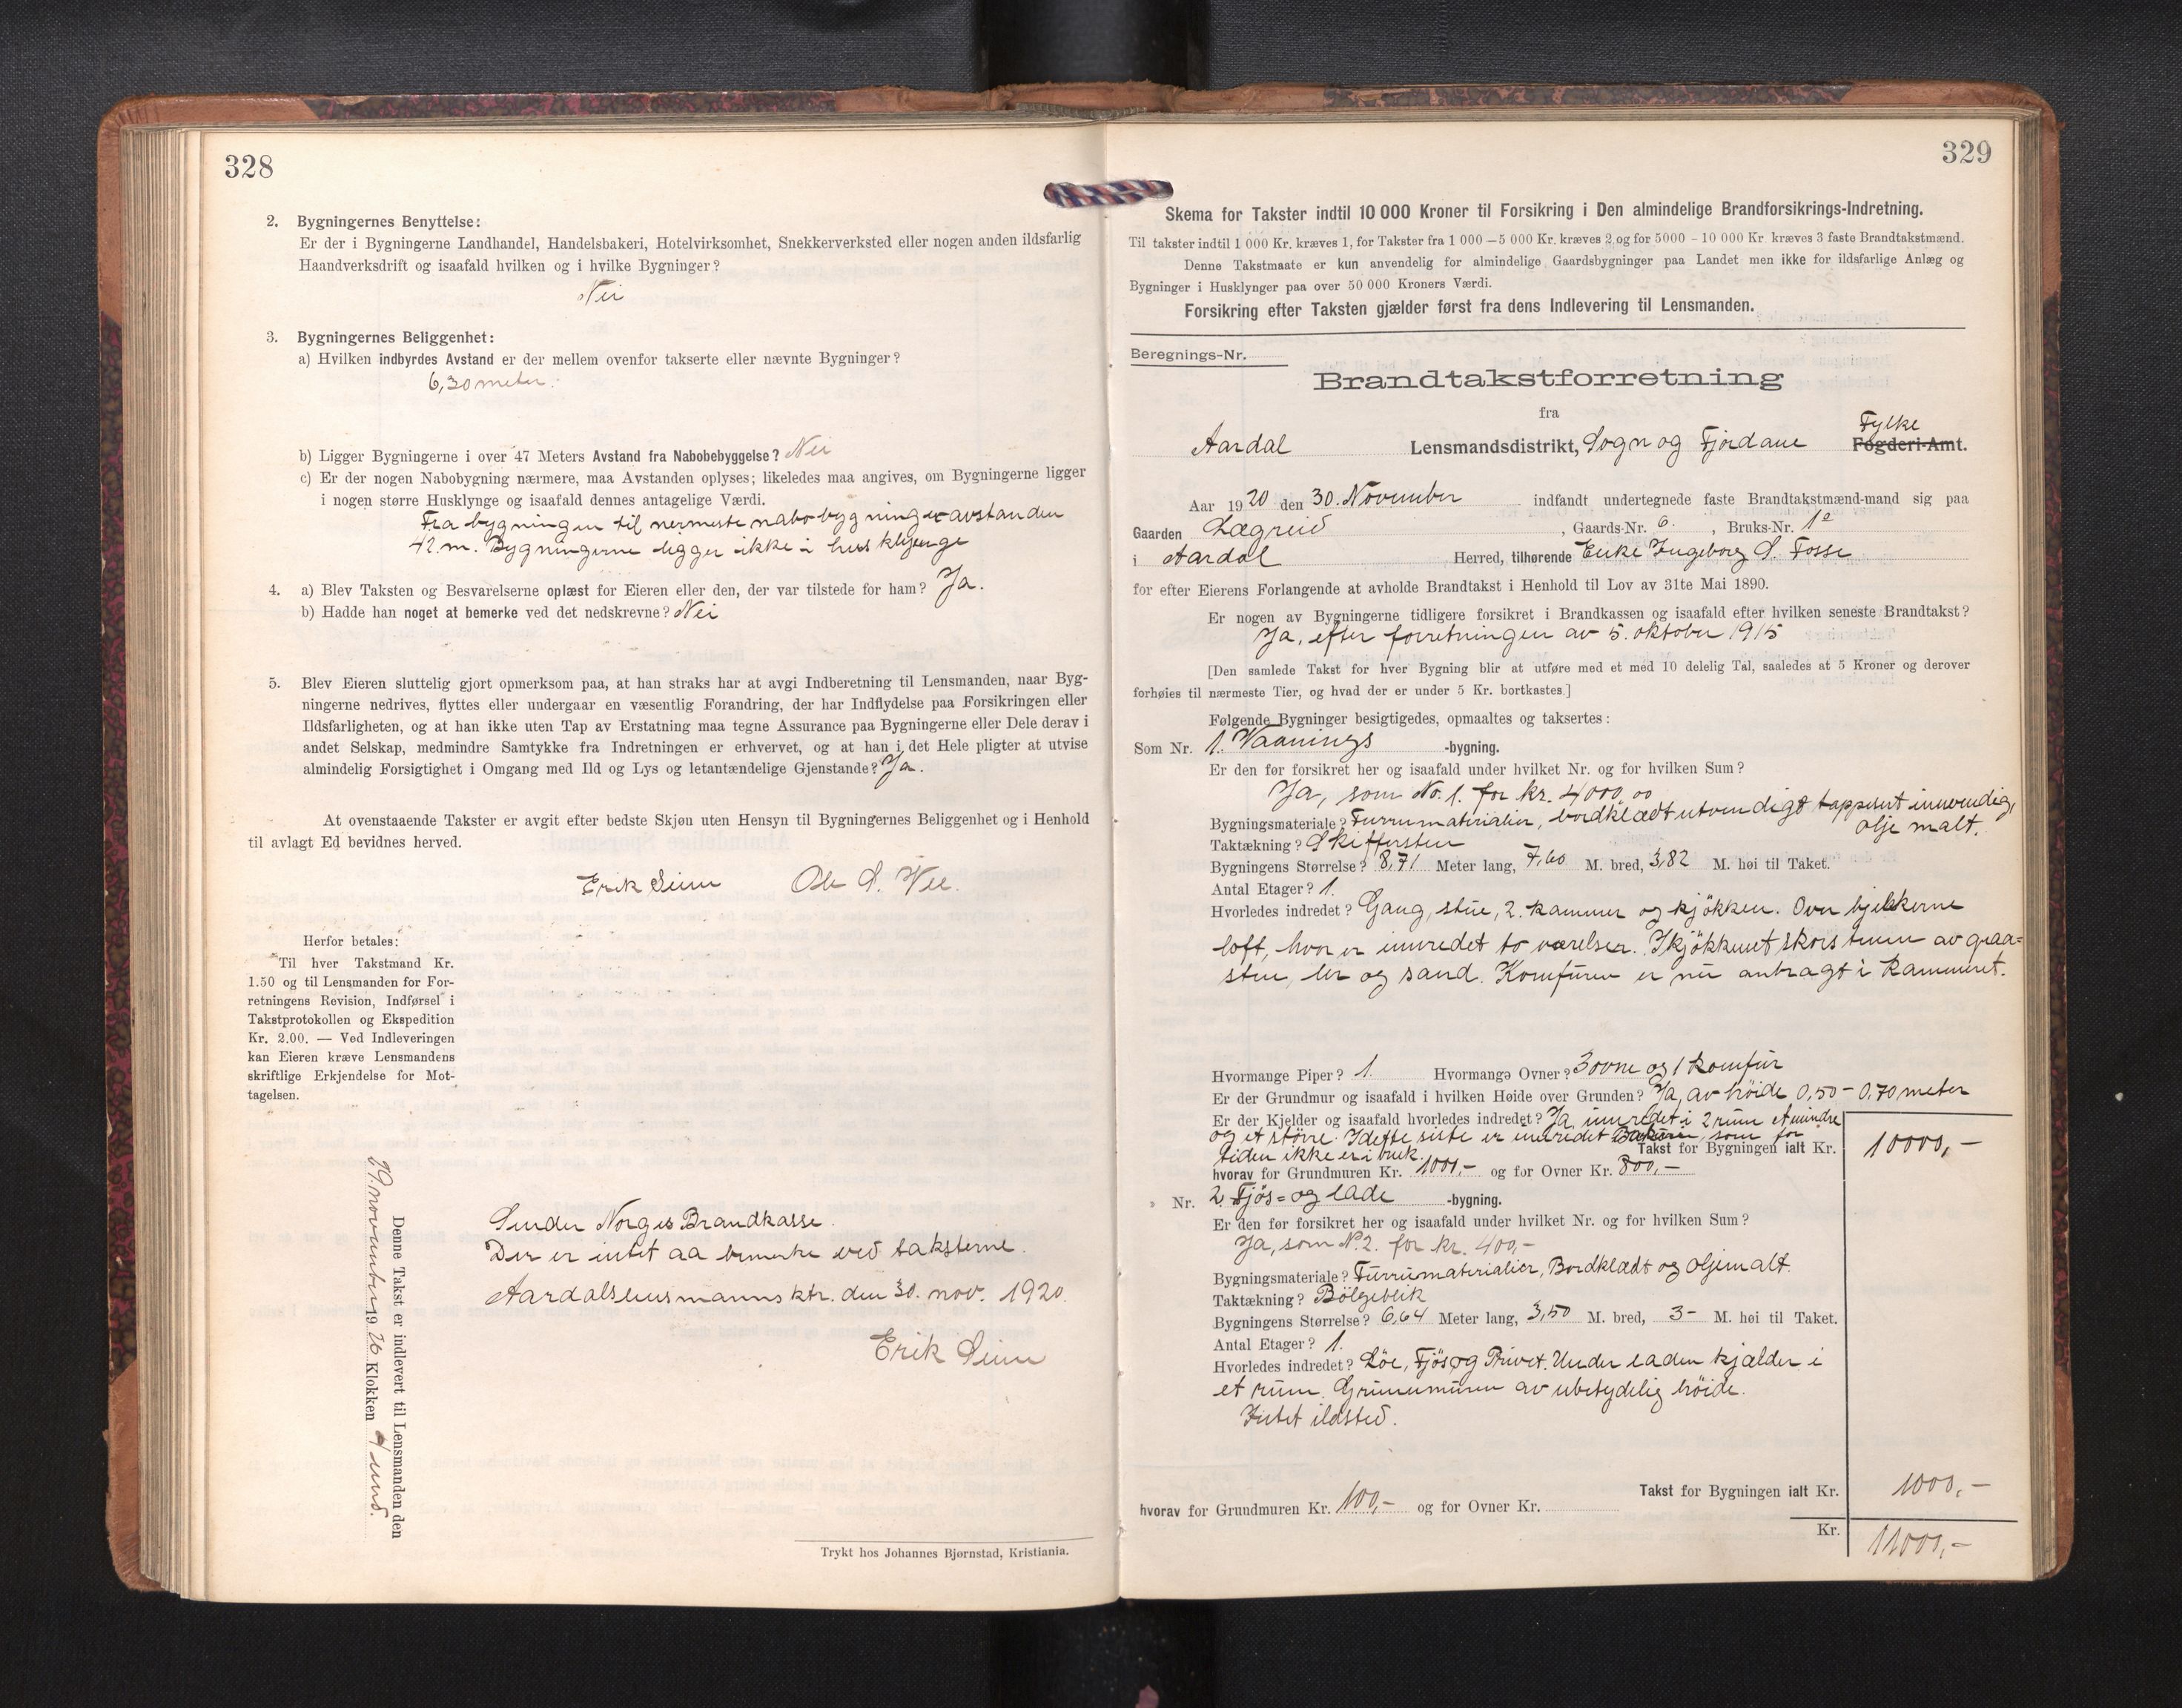 328
2. Bygningernes Benyttelse:
Er der i Bygningerne Landhandel, Handelsbakeri, Hotelvirksomhet, Snekkerverksted eller nogen anden ildsfarlig
Haandverksdrift og isaafald hvilken og i hvilke Bygninger?
Nei
3. Bygningernes Beliggenhet:
a) Hvilken indbyrdes Avstand er der mellem ovenfor takserte eller nævnte Bygninger?
6,30 meter.
b) Ligger Bygningerne i over 47 Meters Avstand fra Nabobebyggelse? Nei
c) Er der nogen Nabobygning nærmere, maa Avstanden oplyses; likeledes maa angives, om Bygningerne ligger
i nogen større Husklynge og isaafald dennes antagelige Værdi.
Fra bygningen til nermeste nabobygning er avstanden
42 m. Bygningerne ligger ikke i husklynge
4. a) Blev Taksten og Besvarelserne oplæst for Eieren eller den, der var tilstede for ham? Ja.
b) Hadde han noget at bemerke ved det nedskrevne? Nei
5. Blev Eieren sluttelig gjort opmerksom paa, at han straks har at avgi Indberetning til Lensmanden, naar Byg-
ningerne nedrives, flyttes eller undergaar en væsentlig Forandring, der har Indflydelse paa Forsikringen eller
Ildsfarligheten, og at han ikke uten Tap av Erstatning maa tegne Assurance paa Bygningerne eller Dele derav i
andet Selskap, medmindre Samtykke fra Indretningen er erhvervet, og at han i det Hele pligter at utvise
almindelig Forsigtighet i Omgang med Ild og Lys og letantændelige Gjenstande? Ja.
At ovenstaaende Takster er avgit efter bedste Skjøn uten Hensyn til Bygningernes Beliggenhet og i Henhold
til avlagt Ed bevidnes herved.
Erik Seim Ole S. Vee.
Herfor betales:
Til hver Takstmand Kr.
1.50 og til Lensmanden for For-
retningens Revision, Indførsel i
Takstprotokollen og Ekspedition
Kr. 2.00. — Ved Indleveringen
kan Eieren kræve Lensmandens
skriftlige Erkjendelse for Mot-
tagelsen.
Denne Takst er indlevert til Lensmanden den
29. november 1920 Klokken 4 umd.
Sender Norges Brandkasse.
Der er intet aa bemerke ved taksterne.
Aardal lensmannsktr. den 30. nov. 1920.
Erik Seim
Trykt hos Johannes Bjørnstad, Kristiania.
329
Skema for Takster indtil 10 000 Kroner til Forsikring i Den almindelige Brandforsikrings-Indretning.
Til takster indtil 1 000 Kr. kræves 1, for Takster fra 1 000 — 5 000 Kr. kræves 2 og for 5000 - 10 000 Kr. kræves 3 faste Brandtakstmænd.
Denne Takstmaate er kun anvendelig for almindelige Gaardsbygninger paa Landet men ikke for ildsfarlige Anlæg og
Bygninger i Husklynger paa over 50 000 Kroners Værdi.
Forsikring efter Taksten gjælder først fra dens Indlevering til Lensmanden.
Beregnings-Nr.
Brandtakstforretning
fra
Fylke
Aardal Lensmandsdistrikt, Sogn og Fjordane Fogderi-Amt.
Aar 1920 den 30. November indfandt undertegnede faste Brandtakstmænd-mand sig paa
Gaarden Lægreid, Gaards-Nr. 6., Bruks-Nr. 12
i Aardal Herred, tilhørende Enke Ingeborg S. Fosse
for efter Eierens Forlangende at avholde Brandtakst i Henhold til Lov av 31te Mai 1890.
Er nogen av Bygningerne tidligere forsikret i Brandkassen og isaafald efter hvilken seneste Brandtakst?
Ja, efter forretningen av 5. oktober 1915
[Den samlede Takst for hver Bygning blir at utføre med et med 10 delelig Tal, saaledes at 5 Kroner og derover
forhøies til nærmeste Tier, og hvad der er under 5 Kr. bortkastes.]
Følgende Bygninger besigtigedes, opmaaltes og taksertes:
Som Nr. 1. Vaanings -bygning.
Er den før forsikret her og isaafald under hvilket Nr. og for hvilken Sum?
Ja, som No. 1. for kr. 4000,00
Bygningsmateriale? Furrumaterialier, bordklædt utvendigt tapsert innvendig,
olje malt.
Taktækning? Skiffersten
Bygningens Størrelse? 8,71 Meter lang, 7,60 M. bred, 3,82 M. høi til Taket.
Antal Etager? 1.
Hvorledes indredet? Gang, stue, 2. kammer og kjøkken. Over bjelkerne
loft, hvor er innredet to værelser. I kjøkkenet skorstenen av graa=
sten, ler og sand. Komfuren er nu anbragt i kammeret.
Hvormange Piper? 1. Hvormange Ovner? 3 ovne og 1 komfur
Er der Grundmur og isaafald i hvilken Høide over Grunden? Ja, av høide 0,50 - 0,70 meter
Er der Kjelder og isaafald hvorledes indredet? Ja, innredet i 2 rum et mindre
og et større. I dette siste er innredet Bakeri, som for
tiden ikke er i bruk. Takst for Bygningen ialt Kr. 10000,-
hvorav for Grundmuren Kr. 1000,- og for Ovner Kr. 800,-
Nr. 2 Fjøs= og lade -bygning.
Er den før forsikret her og isaafald under hvilket Nr. og for hvilken Sum?
Ja, som No. 2. for kr. 400,-
Bygningsmateriale? Furrumaterialier, Bordklædt og oljemalt.
Taktækning? Bølgeblik
Bygningens Størrelse? 6,64 Meter lang, 3,50 M. bred, 3- M. høi til Taket.
Antal Etager? 1.
Hvorledes indredet? Løe, Fjøs og Privet. Under laden kjælder i
et rum. Grunnmuren av ubetydelig høide.
Intet ildsted.
Takst for Bygningen ialt Kr. 1000,-
hvorav for Grundmuren Kr. 100,- og for Ovner Kr.
Kr. 11000,-